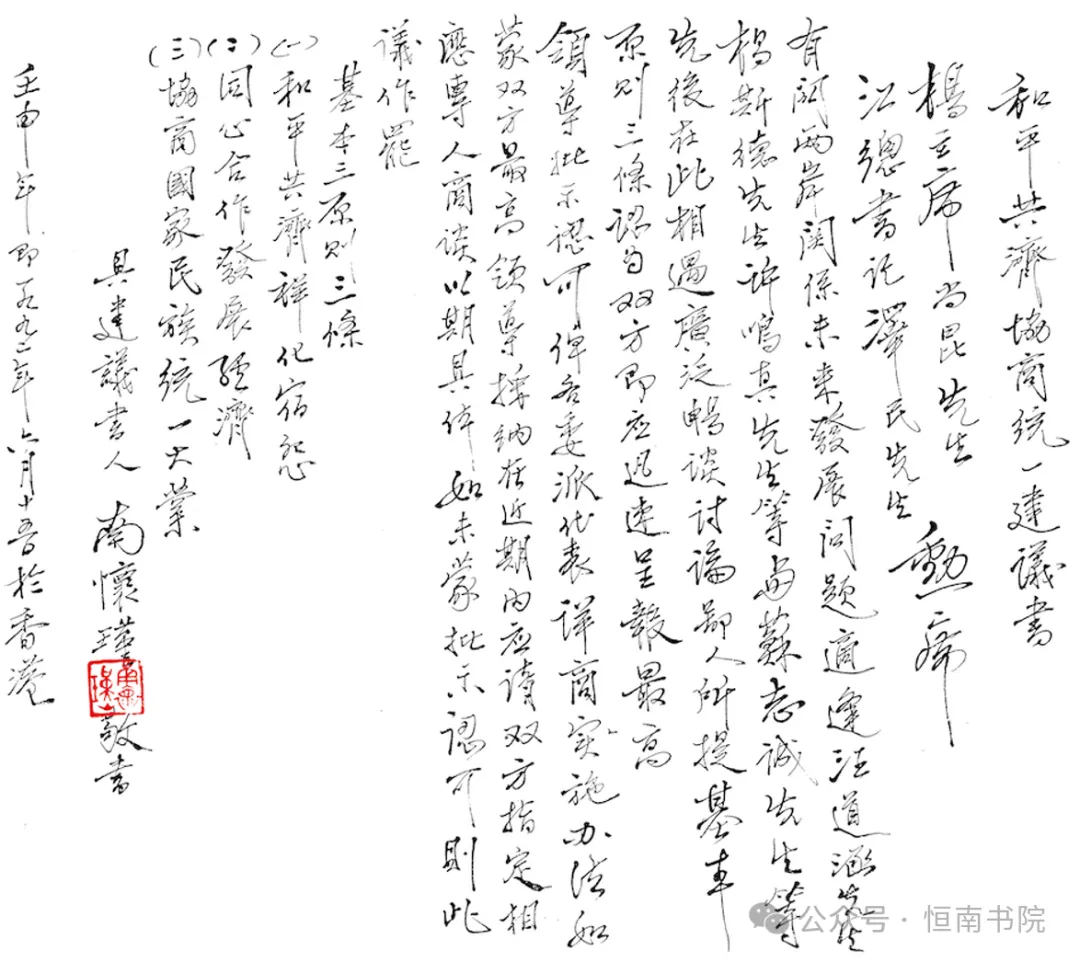 和平共濟協商統一建議書
楊主席尚昆先生
江總書記澤民先生
勳鑒
有關兩岸關係未來發展問題適逢汪道涵先生
楊斯德先生許鳴真先生等與蘇志誠先生等
先後在此相遇廣泛暢談討論鄙人所提基本
原則三條認為双方即应迅速呈報最高
領導批示認可俾各委派代表詳商实施办法如
蒙双方最高領導採納在近期內应請双方指定相
應專人商談以期具体如未蒙批示認可則此
議作罷
基本三原則三條
(一)和平共濟祥化宿怨
(二)同心合作發展經濟
(三)協商國家民族統一大業
具建議書人 南懷瑾敬書
壬申年即一九九二年六月十五日於香港
公众号·恒南书院